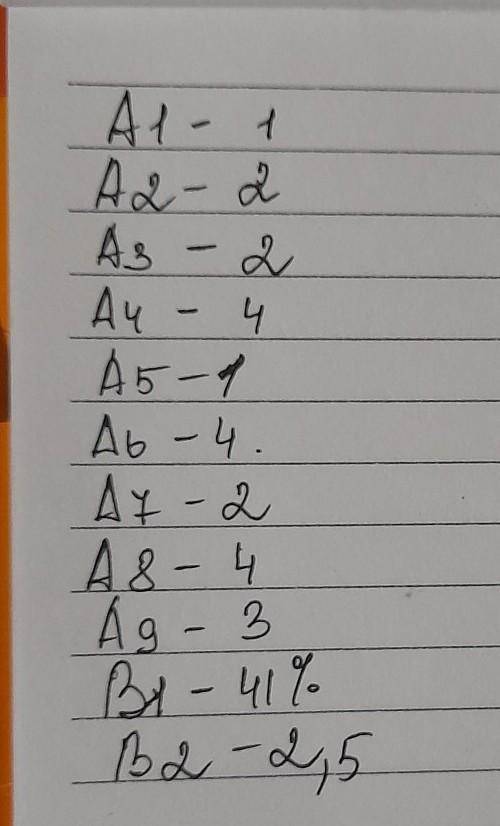 A1 - 1
A2 - 2
A3 - 2
A4 - 4
A5 - 1
A6 - 4.
A7 - 2
A8 - 4
A9 - 3
B1 - 41%
B2 - 2,5